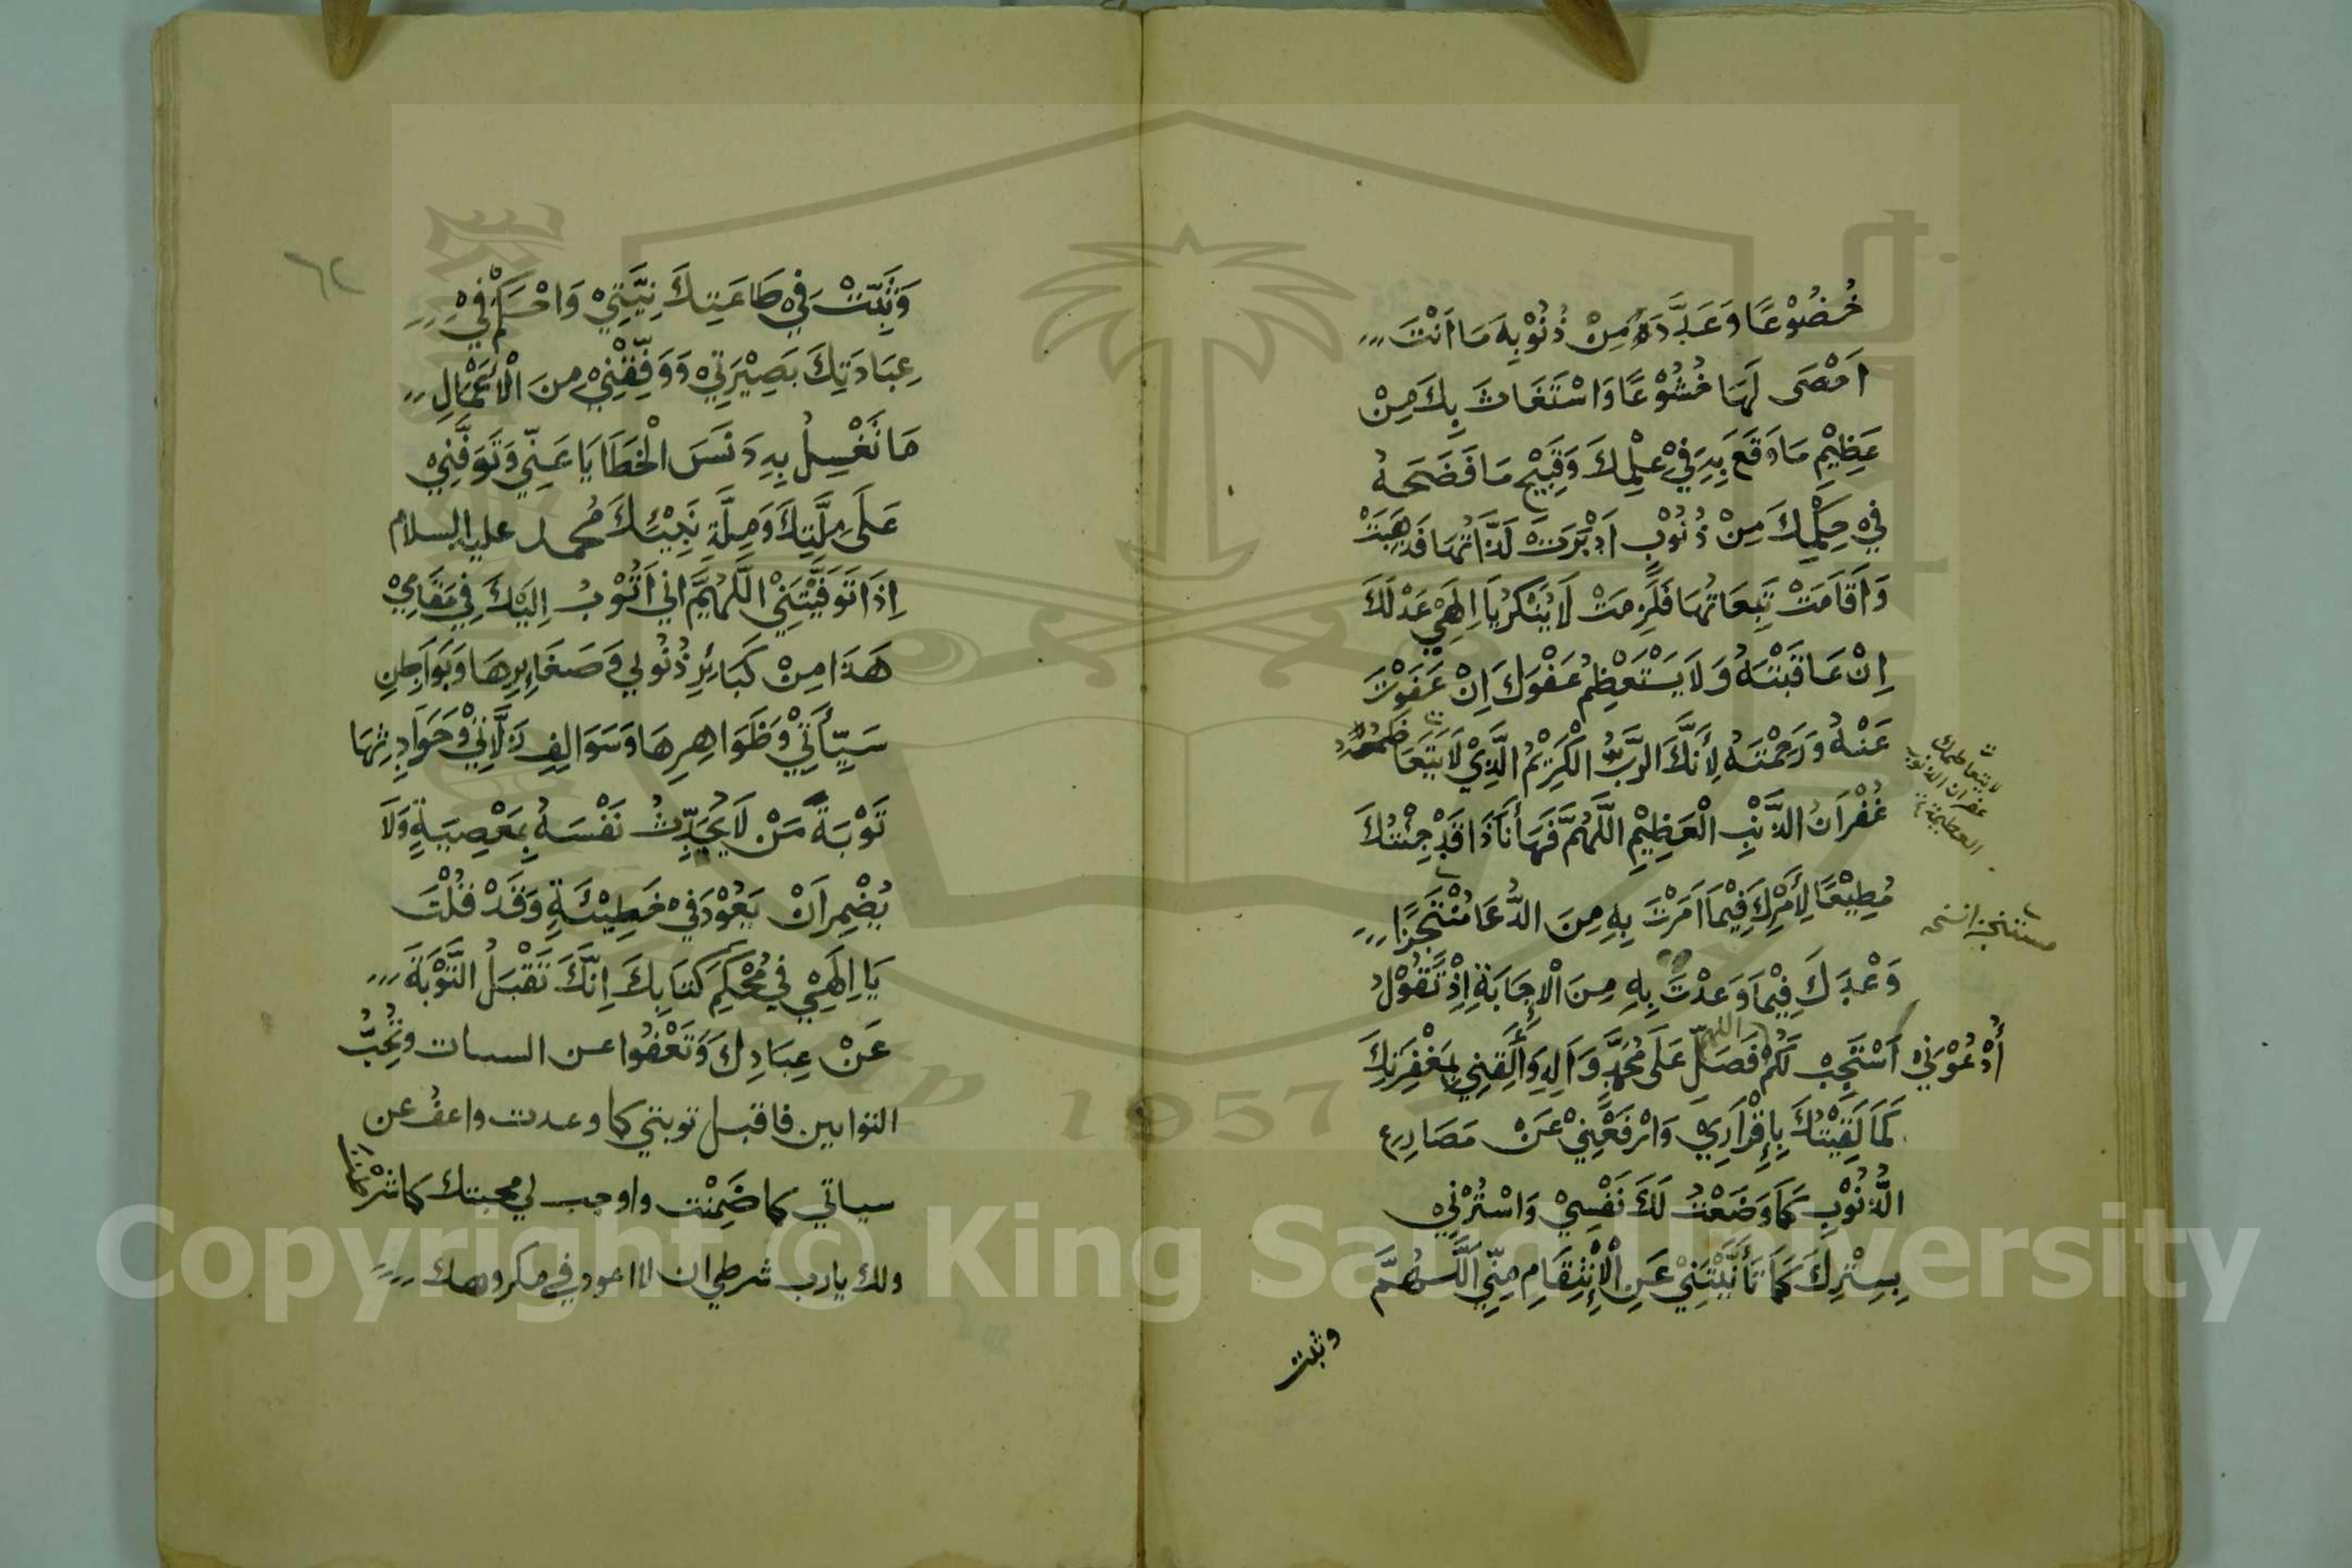 خُضُوْعًا وَعَدَّدَ مِنْ ذُنُوْبِهِ مَا اَنْتَ
اَحْصَى لَهَا خُشُوْعًا وَاسْتَغَاثَ بِكَ مِنْ
عَظِيْمِ مَا وَقَعَ بِهِ فِيْ عِلْمِكَ وَقَبِيْحِ مَا فَضَحَهُ
فِيْ حِكْمِكَ مِنْ ذُنُوْبٍ اَدْبَرَتْ لَذَّاتُهَا فَذَهَبَتْ
وَاَقَامَتْ تَبِعَاتُهَا فَلَزِمَتْ لَا يُنْكِرُ يَا اِلَهِيْ عَدْلَكَ
اِنْ عَاقَبْتَهُ وَلَا يَسْتَعْظِمُ عَفْوَكَ اِنْ عَفَوْتَ
عَنْهُ وَرَحِمْتَهُ لِأَنَّكَ الرَّبُّ الْكَرِيْمُ الَّذِيْ لَا يَتَعَاظَمُهُ
لا يتعاظمك
غفران الذنوب
العظيمة
غُفْرَانُ الذَّنْبِ الْعَظِيْمِ اللَّهُمَّ فَهَا أَنَا ذَا قَدْ جِئْتُكَ
مُطِيْعًا لِأَمْرِكَ فِيْمَا اَمَرْتَ بِهِ مِنَ الدُّعَا مُنْتَجِزًا
وَعْدَكَ فِيْمَا وَعَدْتَ بِهِ مِنَ الْاِجَابَةِ اِذْ تَقُوْلُ
اللهم
أُدْعُوْنِيْ اَسْتَجِبْ لَكُمْ فَصَلِّ عَلَى مُحَمَّدٍ وَاَلِهِ وَأَلْقِنِيْ بِمَغْفِرَتِكَ
كَمَا لَقِيْتُكَ بِاِقْرَارِيْ وَارْفَعْنِيْ عَنْ مَصَارِعِ
الذُّنُوْبِ كَمَا وَضَعْتُ لَكَ نَفْسِيْ وَاسْتُرْنِيْ
بِسِتْرِكَ كَمَا تَأَنَّيْتَنِيْ عَنِ الْاِنْتِقَامِ مِنِّيْ اَللَّهُمَّ
وثبت
٦٢
وَثَبِّتْ فِيْ طَاعَتِكَ نِيَّتِيْ وَاحْكِمْ فِيْ
عِبَادَتِكَ بَصِيْرَتِيْ وَوَفِّقْنِيْ مِنَ الْاَعْمَالِ
مَا تَغْسِلُ بِهِ دَنَسَ الْخَطَايَا عَنِّيْ وَتَوَفَّنِيْ
عَلَى مِلَّتِكَ وَمِلَّةِ نَبِيِّكَ مُحمد عليه السلام
اِذَا تَوَفَّيْتَنِيْ اللَّهُمَّ اني اَتُوْبُ اِلَيْكَ فِيْ مَقَامِيْ
هَذَا مِنْ كَبَائِرِ ذُنُوبِي وَصَغَائِرِهَا وَبَوَاطِنِ
سَيِّأَتِيْ وَظَوَاهِرِهَا وَسَوَالِفِ زَلَّاتِيْ وَحَوَادِثِهَا
تَوْبَةَ مَنْ لَا يُحَدِّثُ نَفْسَهُ بِمَعْصِيَةٍ وَلَا
يُضْمِرُ اَنْ يَعُوْدَ فِيْ خَطِيْئَةٍ وَقَدْ قُلْتَ
يَا اِلَهِيْ فِيْ مُحْكَمِ كِتَابِكَ اِنَّكَ تَقْبَلُ التَّوْبَةَ
عَنْ عِبَادِكَ وَتَعْفُوا عن السيات وَتُحِبُّ
التوابين فاقبل توبتي كما وعدت واعفُ عن
سياتي كما ضَمِنْتَ واوجب لي محبتك كما شرْطتَ
ولك يارب شرطي ان لا اعود في مكروهك